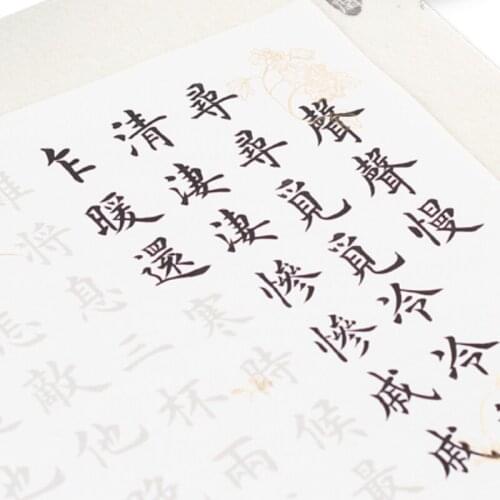 聲聲慢
尋尋覓覓冷冷
清淒淒慘慘戚戚
乍暖還寒時候最
將息三杯兩
怎敵他